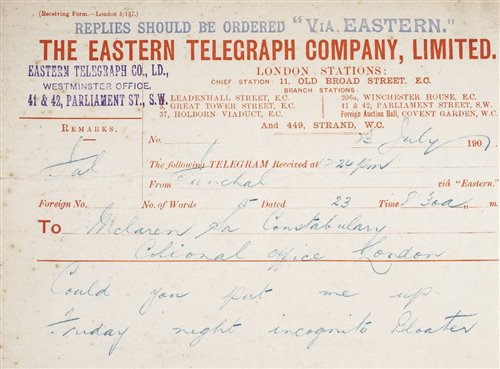 (Receiving Form.—London 5/187.)
REPLIES SHOULD BE ORDERED "VIA EASTERN."
THE EASTERN TELEGRAPH COMPANY, LIMITED.
EASTERN TELEGRAPH CO., LD.,
WESTMINSTER OFFICE,
41 & 42, PARLIAMENT ST., S.W.
LONDON STATIONS:
CHIEF STATION: 11, OLD BROAD STREET, E.C.
BRANCH STATIONS
LEADENHALL STREET, E.C. 206a, WINCHESTER HOUSE, E.C.
GREAT TOWER STREET, E.C. 41 & 42, PARLIAMENT STREET, S.W.
37, HOLBORN VIADUCT, E.C. Foreign Auction Hall, COVENT GARDEN, W.C.
And 449, STRAND, W.C.
REMARKS.
No. July 190
The following TELEGRAM Received at 2 24 pm
From Funchal via "Eastern."
Foreign No. No. of Words 15 Dated 23 Time 8 30a m.
To Mclaren Sa Constabulary
Colional office London
Could you put me up
Friday night incognito Bloater